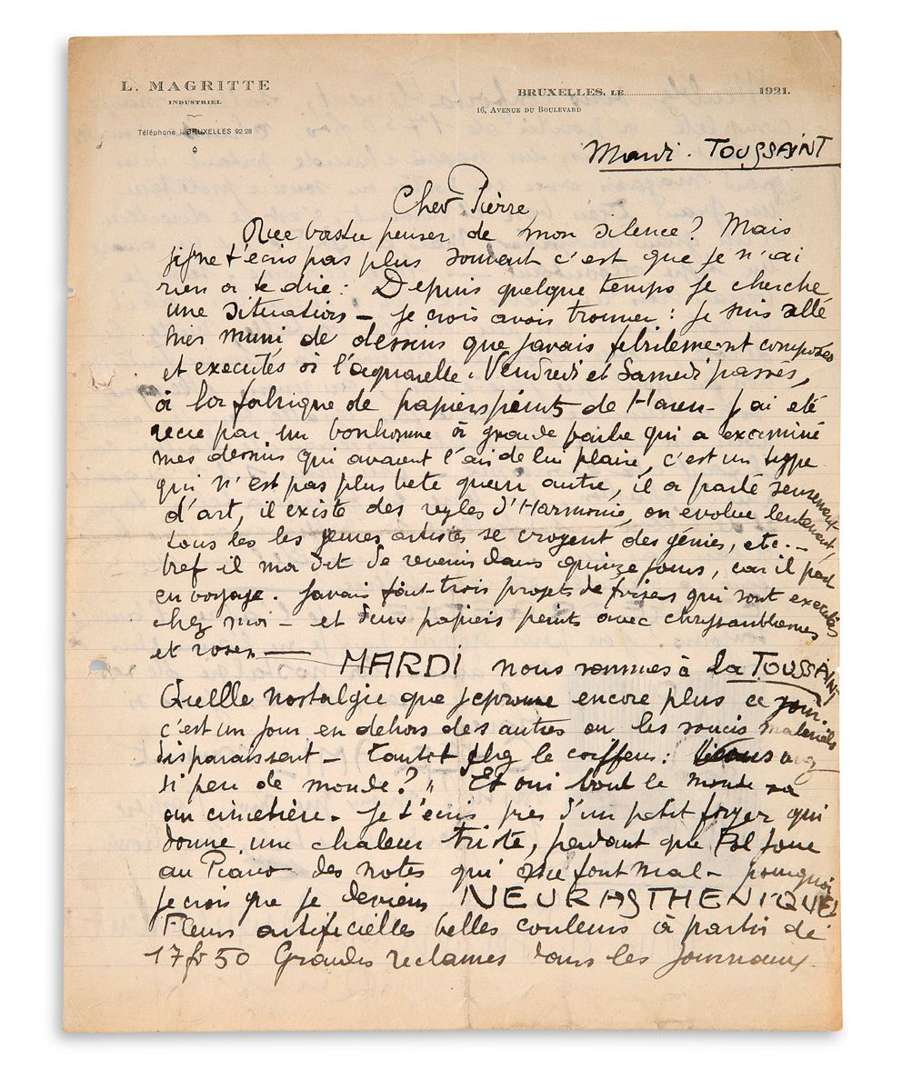 L. MAGRITTE
INDUSTRIEL
Téléphone : BRUXELLES 92 28
BRUXELLES, LE 1921.
16, AVENUE DU BOULEVARD
Mardi - TOUSSAINT
Cher Pierre
Que vastu penser de mon silence ? Mais
si je ne t'écris pas plus souvent c'est que je n'ai
rien à te dire : Depuis quelque temps je cherche
une situation – je crois avoir trouver : je suis allé
hier muni de dessins que j'avais fébrilement composés
et executés à l'aquarelle. Vendredi et Samedi passés,
à la fabrique de papierspeints de Haren – j'ai été
recu par un bonhomme à grande barbe qui a examiné
mes dessins qui avaient l'air de lui plaire, c'est un type
qui n'est pas plus bete qu'un autre, il a parlé
d'art, il existe des regles d'Harmonie, on évolue lentement
tous les jeunes artistes se croyent des génies, etc. –
bref il m'a dit de revenir dans quinze jours, car il part
en voyage. J'avais trois projets de frises qui sont executés
chez moi – et deux papiers peints avec chrysanthemes
et roses – MARDI nous sommes à la TOUSSAINT
Quelle nostalgie que encore plus ce jour.
c'est un jour en dehors des autres ou les soucis materiels
disparaissent – Tantot chez le coiffeur :
si peu de monde ? " Et oui tout le monde va
au cimetière – Je t'écris pres d'un petit foyer qui
donne une chaleur triste, pendant que Pol joue
au Piano des notes qui me font mal – pourquoi
je crois que je deviens NEURASTHENIQUE
Fleurs artificielles belles couleurs à partir de
17 fr 50 Grandes reclames dans les journaux.